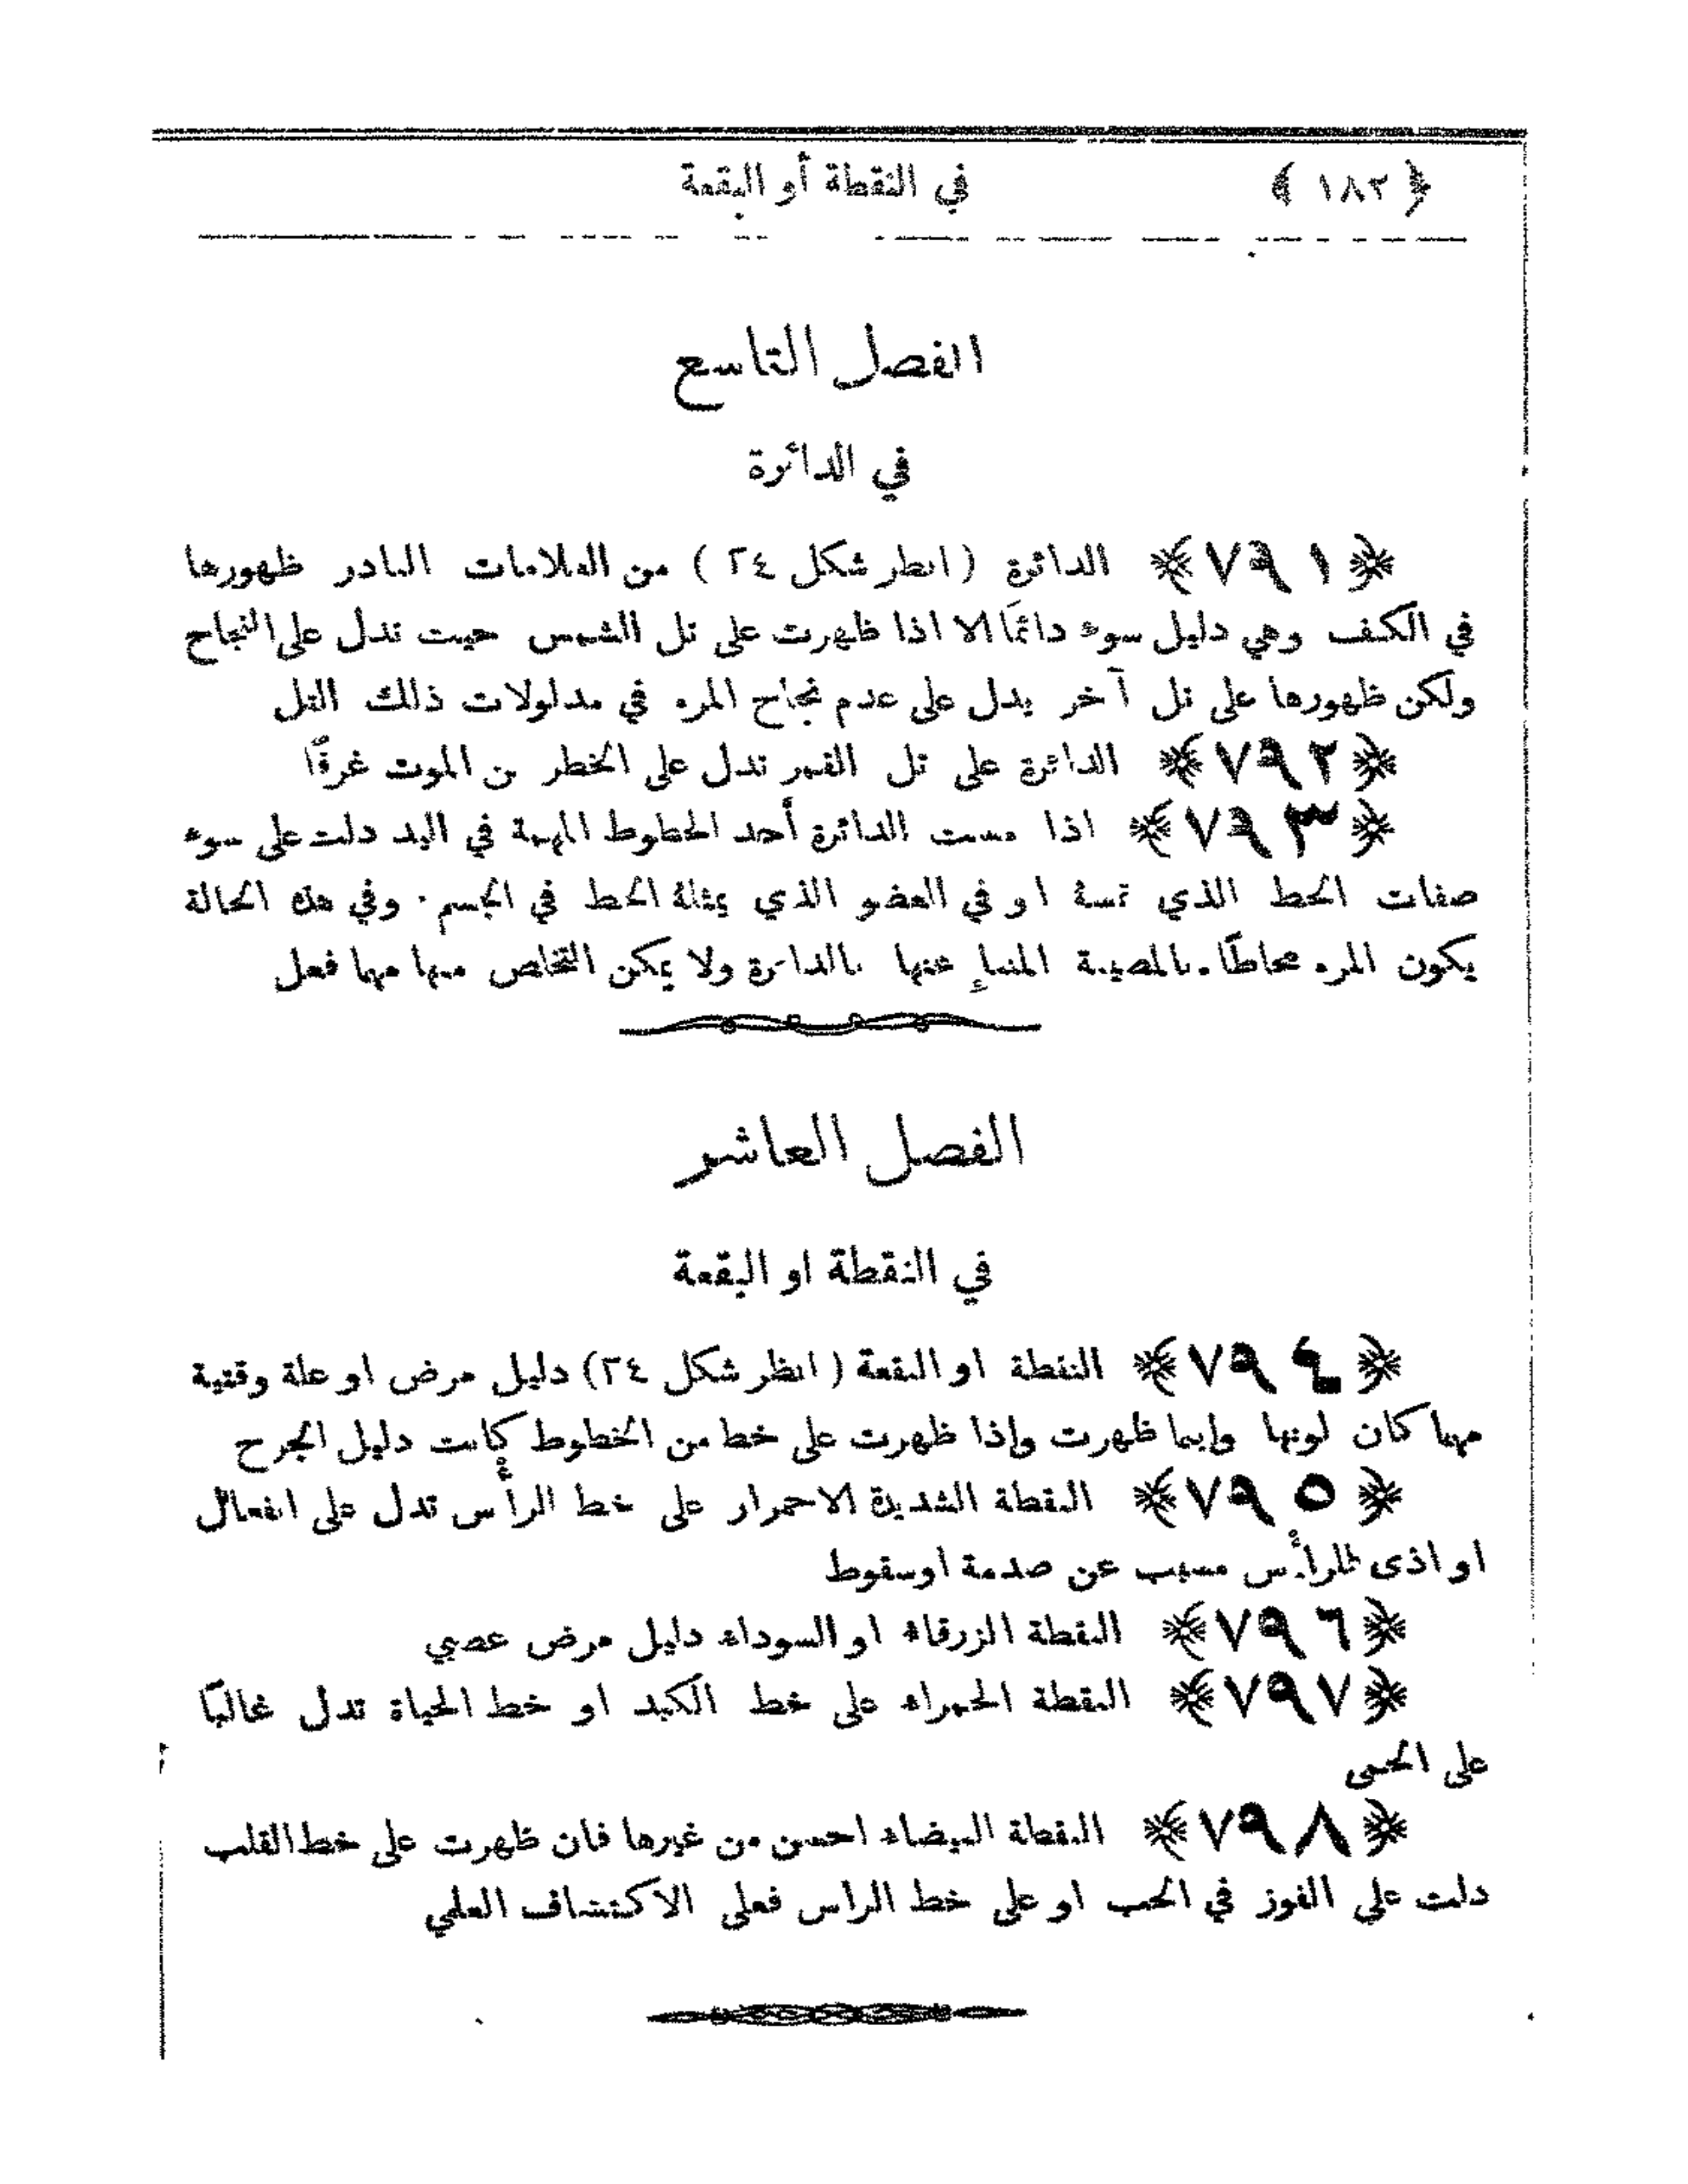 ﴿ ١٨٢ ﴾ في النقطة أو البقعة
الفصل التاسع
في الدائرة
﴿٧٩١﴾ الدائرة ( انظر شكل ٢٤ ) من العلامات النادر ظهورها
في الكف وهي دليل سوء دائمًا الا اذا ظهرت على تل الشمس حيث تدل على النجاح
ولكن ظهورها على تل آخر يدل على عدم نجاح المرء في مدلولات ذلك التل
﴿٧٩٢﴾ الدائرة على تل القمر تدل على الخطر من الموت غرقًا
﴿٧٩٣﴾ اذا مست الدائرة أحد الخطوط المهمة في اليد دلت على سوء
صفات الخط الذي تمسهُ او في العضو الذي يمثلهُ الخط في الجسم . وفي هذه الحالة
يكون المرء محاطًا بالمصيبة المنبإ عنها بالدائرة ولا يمكن التخلص منها مهما فعل
الفصل العاشر
في النقطة او البقعة
﴿٧٩٤﴾ النقطة او البقعة ( انظر شكل ٢٤) دليل مرض او علة وقتية
مهما كان لونها واينما ظهرت واذا ظهرت على خط من الخطوط كانت دليل الجرح
﴿٧٩٥﴾ النقطة الشديدة الاحمرار على خط الرأس تدل على انفعال
او اذى للرأس مسبب عن صدمة او سقوط
﴿٧٩٦﴾ النقطة الزرقاء او السوداء دليل مرض عصبي
﴿٧٩٧﴾ النقطة الحمراء على خط الكبد او خط الحياة تدل غالبًا
على الحمى
﴿٧٩٨﴾ النقطة البيضاء احسن من غيرها فان ظهرت على خط القلب
دلت على الفوز في الحب او على خط الراس فعلى الاكتشاف العلمي